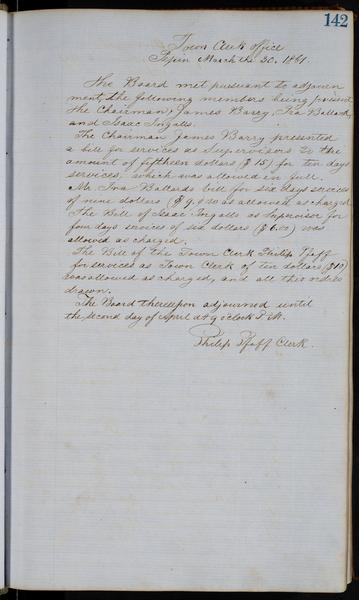 142
Town Clerk Office
Pepin March the 30. 1861.
The Board met pursuant to adjourn
ment, the following members being present
the Chairman, James Barry, Ira Ballard,
and Isaac Ingalls.
The Chairman James Barry presented
a bill for services as Supervisors to the
amount of fifthteen dollars ($15) for ten days
services, which was allowed in full.
Mr. Ira Ballards bill for six days services
of nine dollars ($9.00 was allowed as charged
The Bill of Isaac Ingalls as Supervisor for
four days services of six dollars ($6.00) was
allowed as charged.
The Bill of the Town Clerk Philip Pfaff
for services as Town Clerk of ten dollars ($10)
was allowed as charged, and all the orders
drawn.
The Board thereupon adjourned until
the second day of April at 9 oclock
Philip Pfaff Clerk.